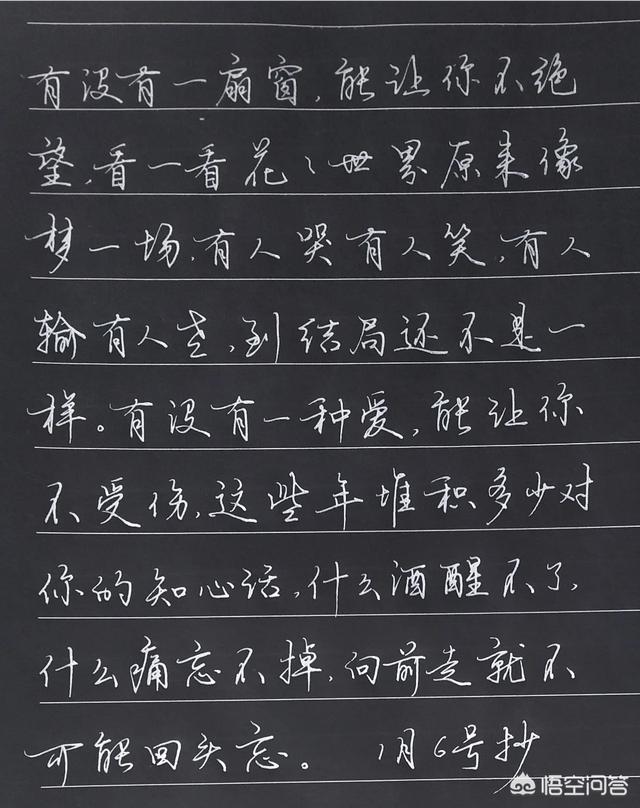 有没有一扇窗，能让你不绝
望，看一看花花世界原来像
梦一场，有人哭有人笑，有人
输有人老，到结局还不是一
样。有没有一种爱，能让你
不受伤，这些年堆积多少对
你的知心话，什么酒醒不了，
什么痛忘不掉，向前走就不
可能回头忘。 1月6号抄
悟空问答